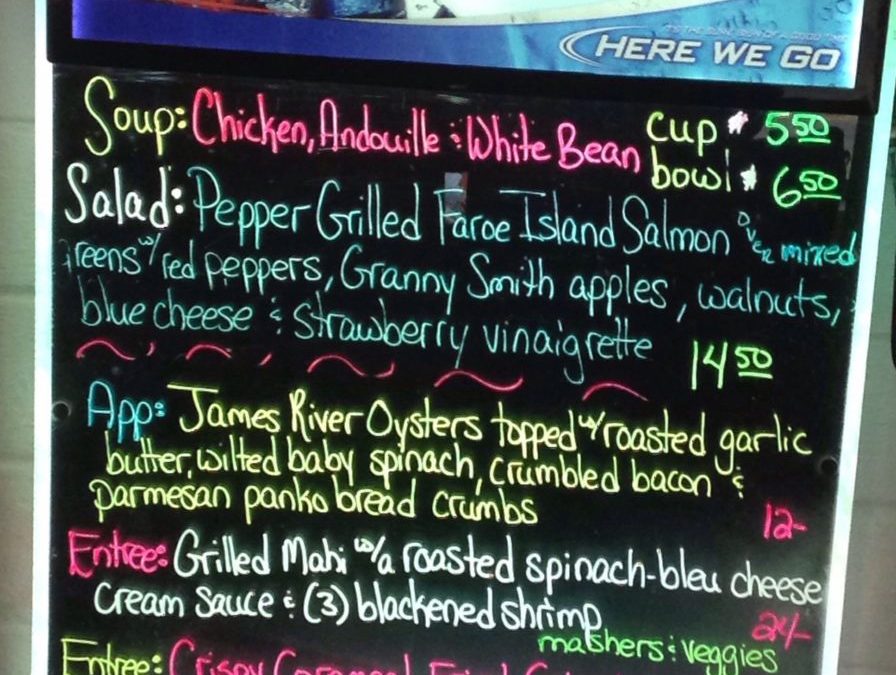 HERE WE GO
Soup: Chicken, Andouille & White Bean cup $ 5.50
bowl $ 6.50
Salad: Pepper Grilled Faroe Island Salmon over mixed
greens w/ red peppers, Granny Smith apples, walnuts,
blue cheese & strawberry vinaigrette
14.50
App: James River Oysters topped w/ roasted garlic
butter, wilted baby spinach, crumbled bacon &
parmesan panko bread crumbs
12-
Entree: Grilled Mahi w/a roasted spinach-bleu cheese
cream sauce & (3) blackened shrimp
24-
mashers & veggies
Entree: Crispy